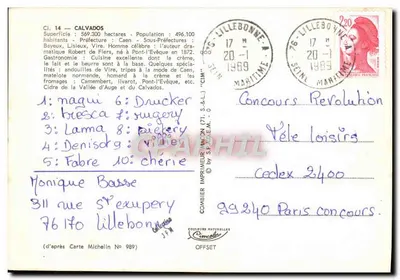 Cl. 14 — CALVADOS
Superficie : 569.300 hectares - Population : 496.100
habitants - Préfecture : Caen - Sous-Préfectures :
Bayeux, Lisieux, Vire. Homme célèbre : l'auteur dra-
matique Robert de Flers, né à Pont-l'Évêque en 1872.
Gastronomie : Cuisine excellente dont la crème,
le lait et le beurre sont à la base. Quelques spécia-
lités : andouilles de Vire, tripes à la mode de Caen,
matelote normande, homard à la crème et les
fromages : Camembert, Livarot, Pont-l'Évêque, etc.
Cidre mousseux de la vallée d'Auge et du Calvados
1: nagui 6: Drucker
2: bresca 7: rugery
3: Lama 8:
4: Denisot 9: ville
5: Fabre 10: cherie
Monique Basse
311 rue St exupery
76170 Lillebon
(d'après Carte Michelin N° 989)
COMBIER IMPRIMEUR MACON (71. S.-&-L.) "CIM"
Combier
OFFSET
76 - LILLEBONNE - A
17 H
20 - 1
1989
SEINE MARITIME
76 - LILLEBONNE - A
17 H
20 - 1
1989
SEINE MARITIME
2,20
Concours Revolution
Tele loisirs
Cedex 2400
99240 Paris concours.